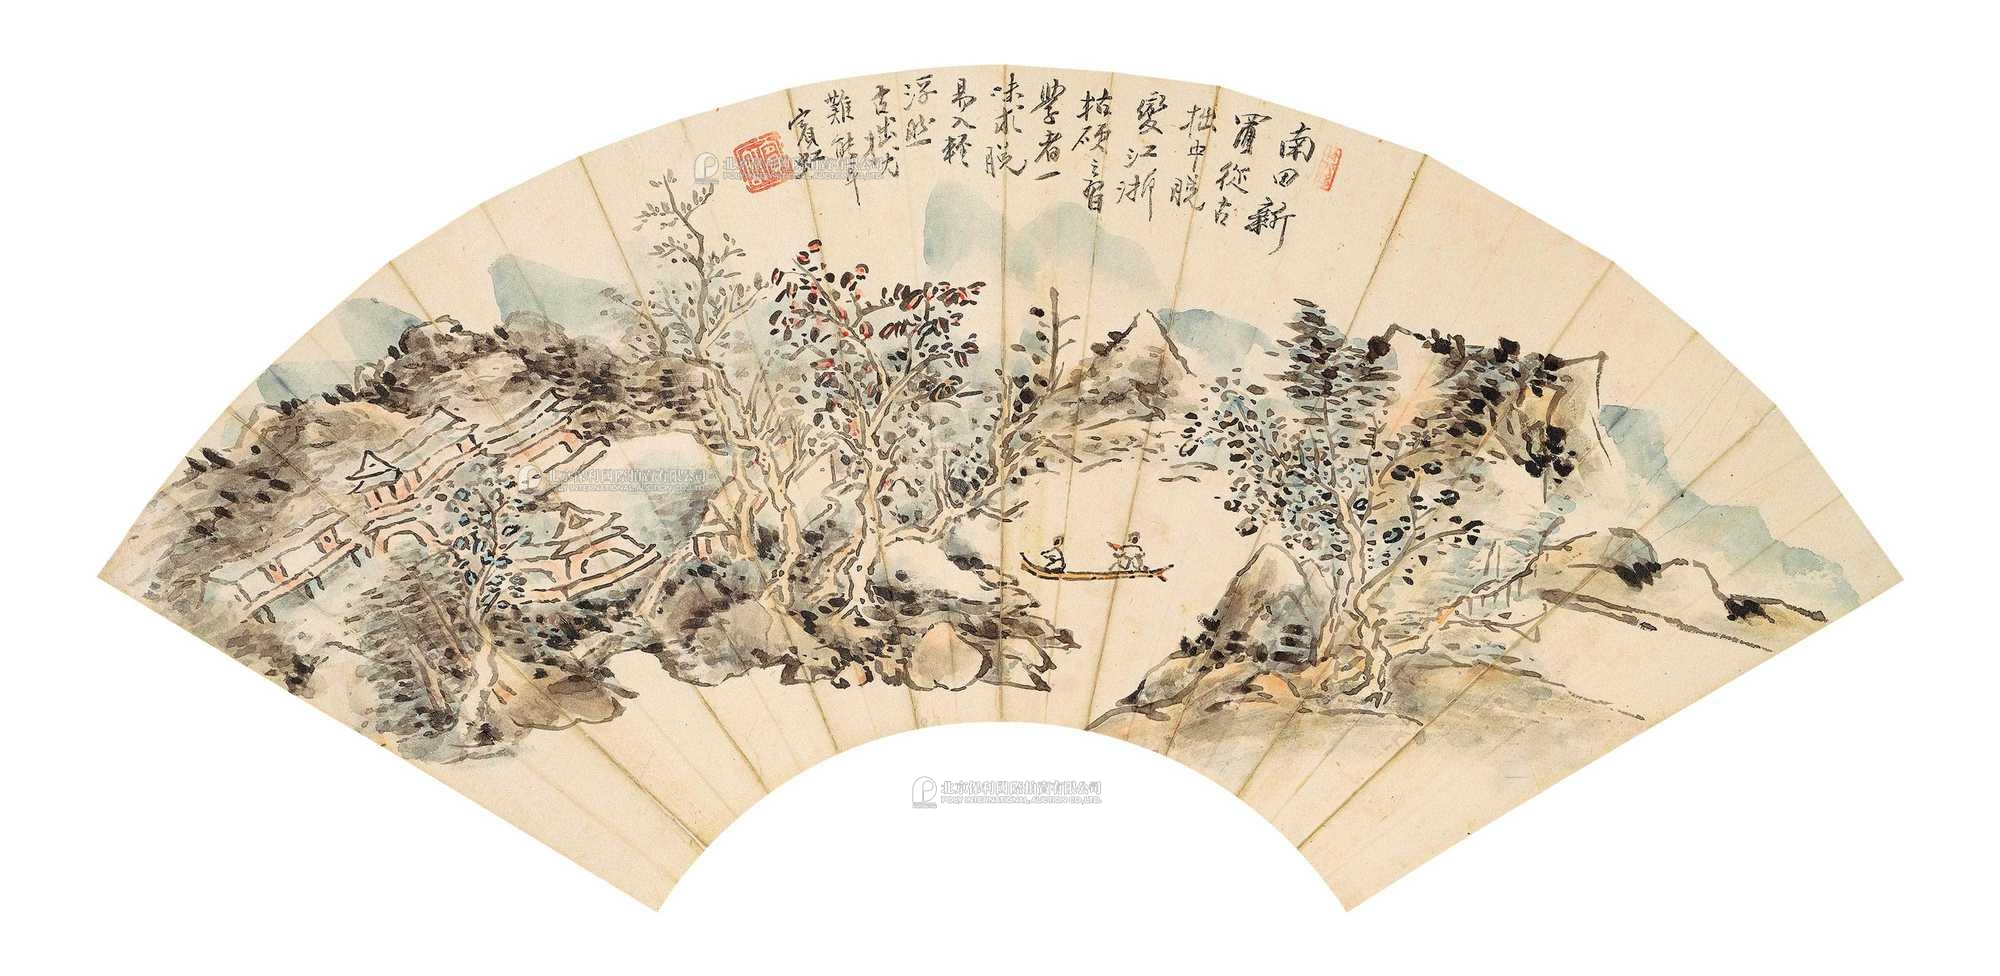 南田新
羅從古
拙中脫
變江浙
枯硬之習
學者一
味求脫
易入輕
浮然
古拙尤
難能耳
賓虹
北京保利國際拍賣有限公司
POLY INTERNATIONAL AUCTION CO.,LTD.
北京保利國際拍賣有限公司
POLY INTERNATIONAL AUCTION CO.,LTD.
北京保利國際拍賣有限公司
POLY INTERNATIONAL AUCTION CO.,LTD.